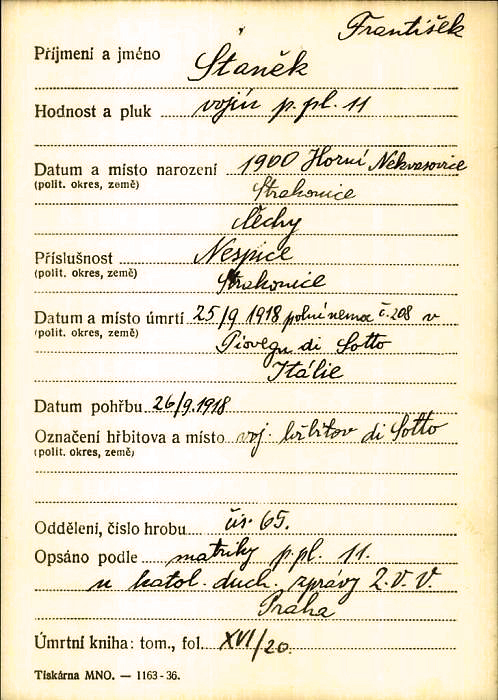 František
Příjmení a jméno Staněk
Hodnost a pluk vojín p. pl. 11
Datum a místo narození 1900 Horní Nekvasovice
(polit. okres, země) Strakonice
Čechy
Příslušnost Nespice
(polit. okres, země) Strakonice
Datum a místo úmrtí 25/9 1918 polní nemoc č. 208 v
(polit. okres, země) Piovegu di Sotto
Itálie
Datum pohřbu 26/9.1918
Označení hřbitova a místo voj. hřbitov di Sotto
(polit. okres, země)
Oddělení, číslo hrobu čís. 65.
Opsáno podle matriky p. pl. 11.
u katol. duch. zprávy Z.V.V.
Praha
Úmrtní kniha: tom., fol. XVI/20.
Tiskárna MNO. — 1163-36.